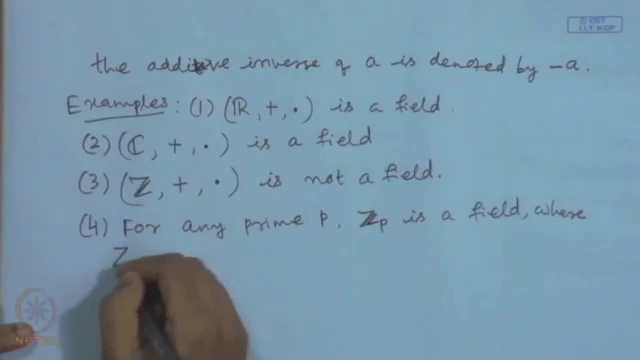 © CET
I.I.T. KGP
the additive inverse of a is denoted by -a.
Examples: (1) (ℝ, +, ·) is a field.
(2) (ℂ, +, ·) is a field
(3) (ℤ, +, ·) is not a field.
(4) For any prime p, ℤp is a field, where
Z
NPTEL